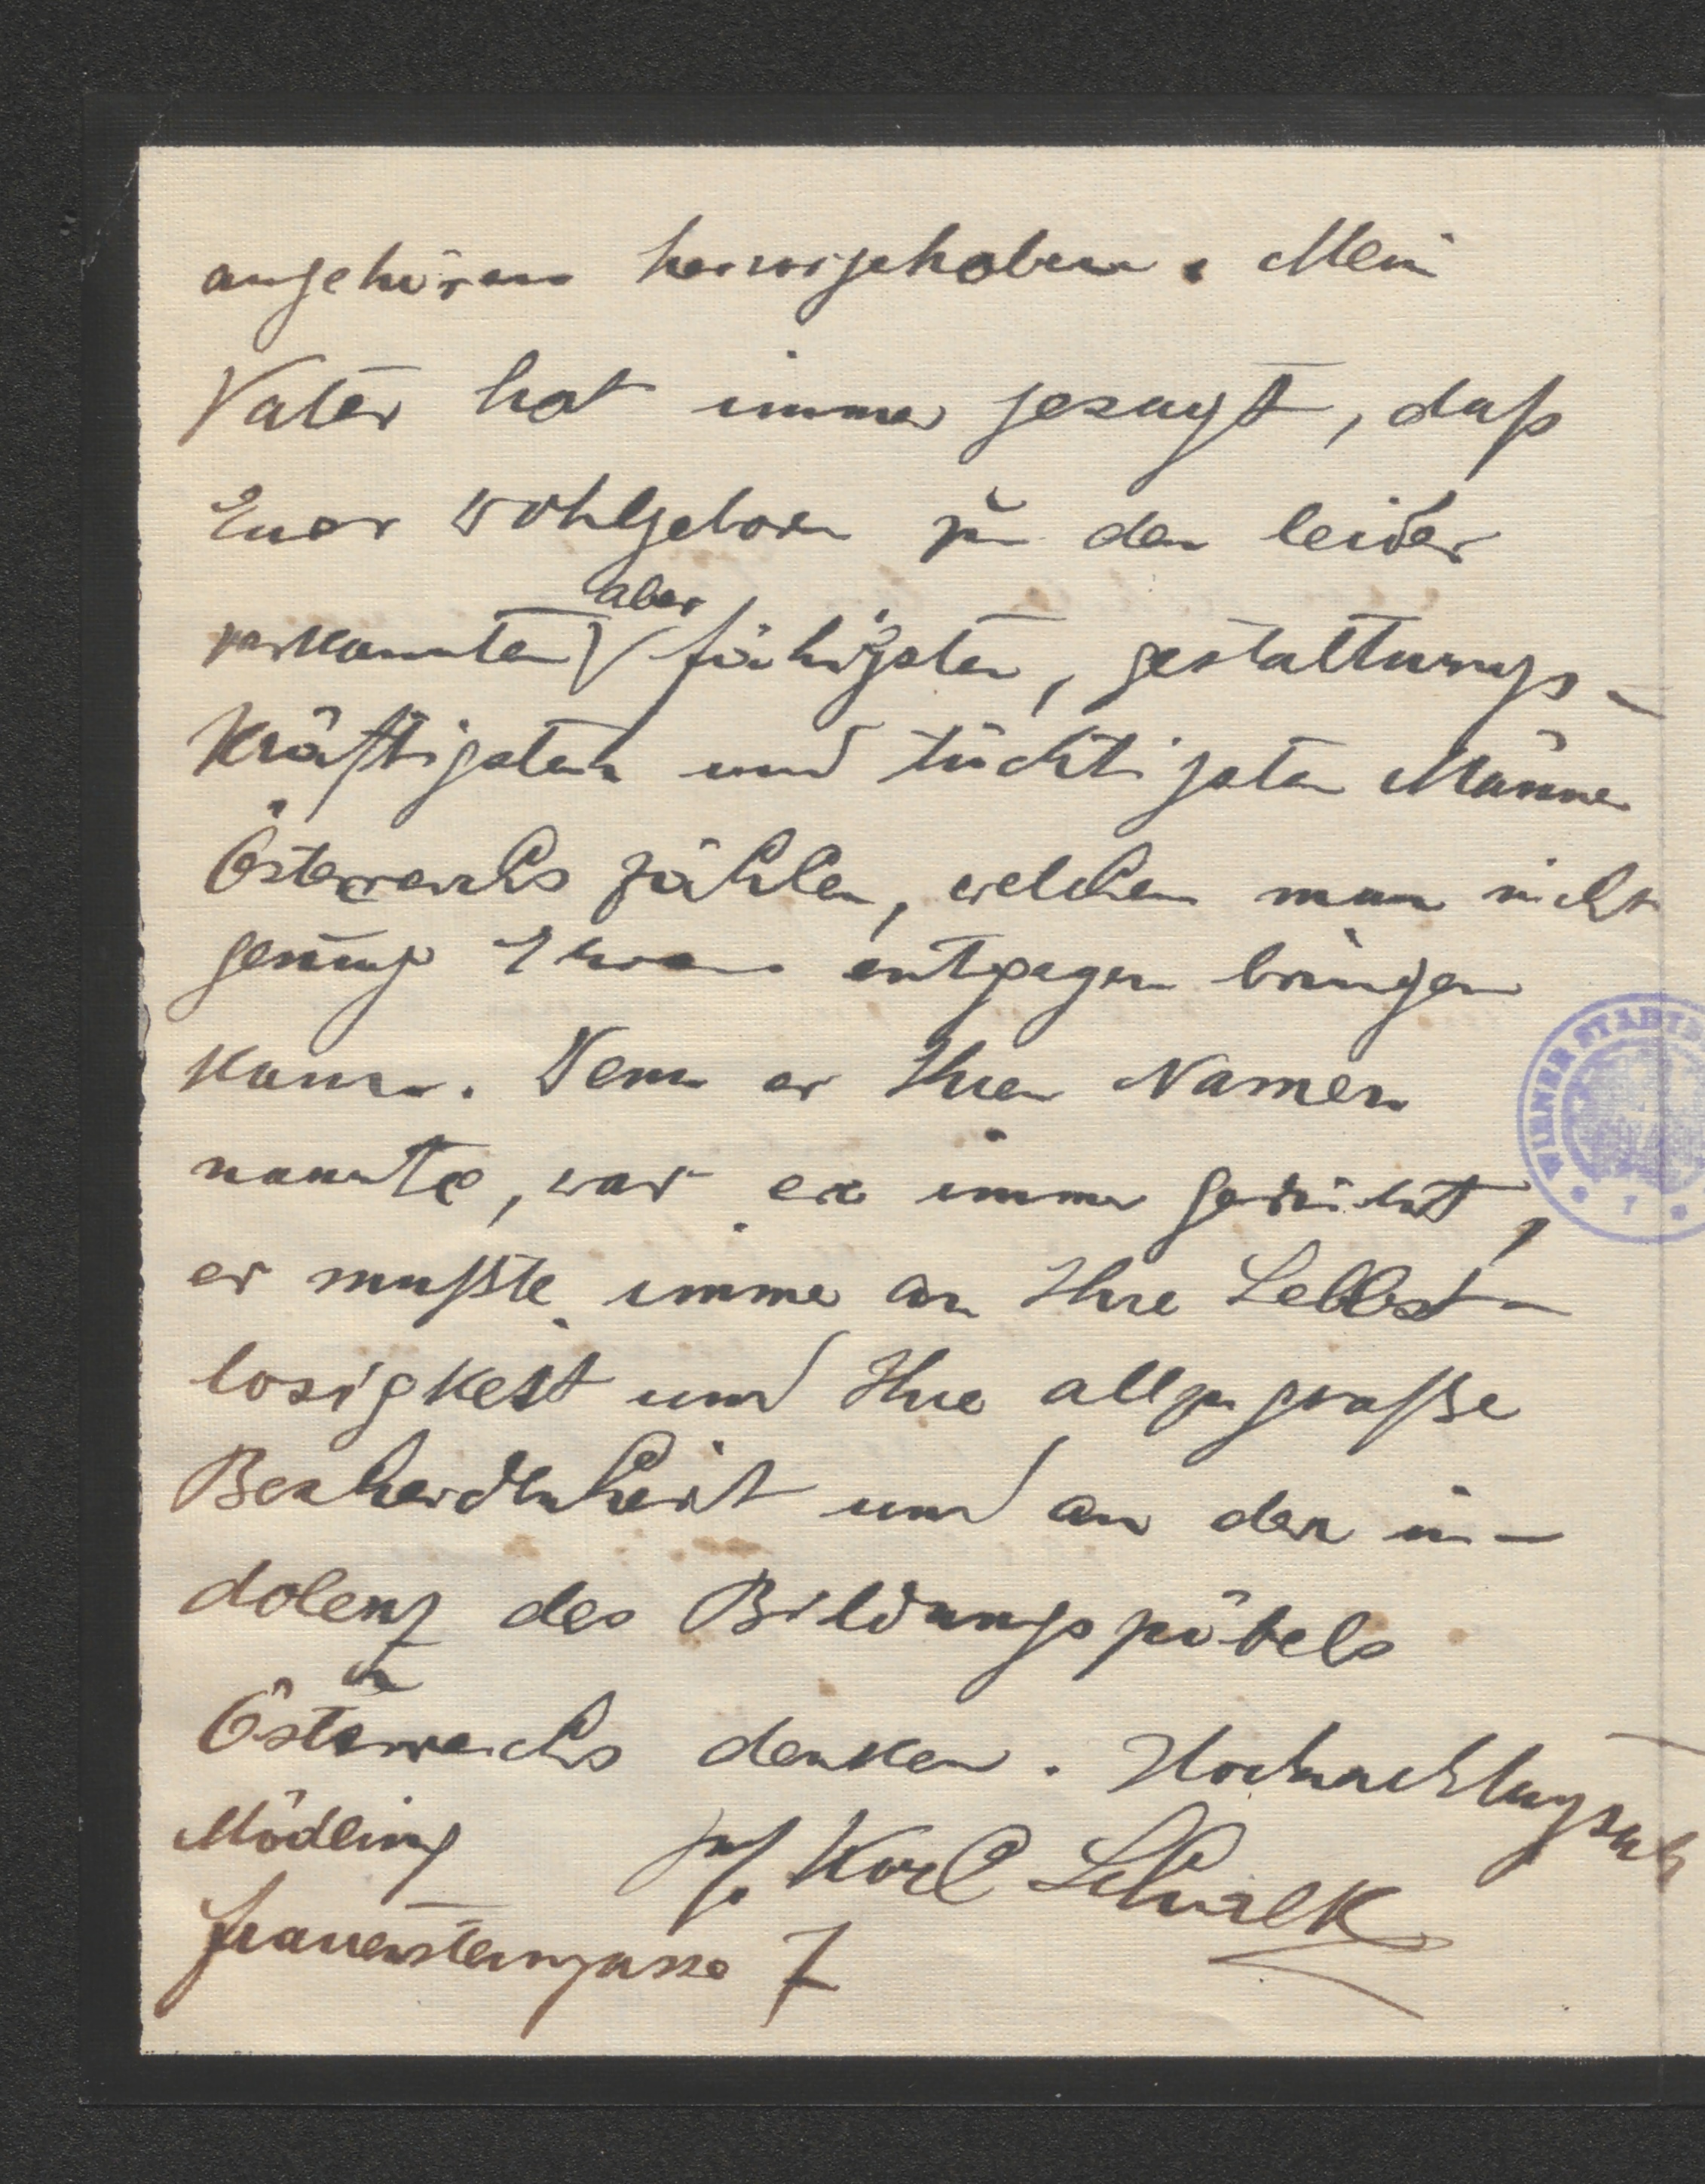 angehören hervorgehoben. Mein
Vater hat immer gesagt, daß
Euer Wohlgeboren zu den leider
verkannten aber fähigsten, gestaltungs-
kräftigsten und tüchtigsten Männer
Österreichs zählen, welchen man nicht
genug entgegen bringen
kann. Wenn er Ihren Namen
nannte, war er immer gerührt,
er mußte immer an Ihre Selbst-
losigkeit und Ihre allzugroße
Bescheidenheit und an den in-
dolenz des Bildungspöbels
in
Österreichs denken. Hochachtungsvoll
Mödling Karl Schalk
Frauensteingasse 7
WIENER STADT
7